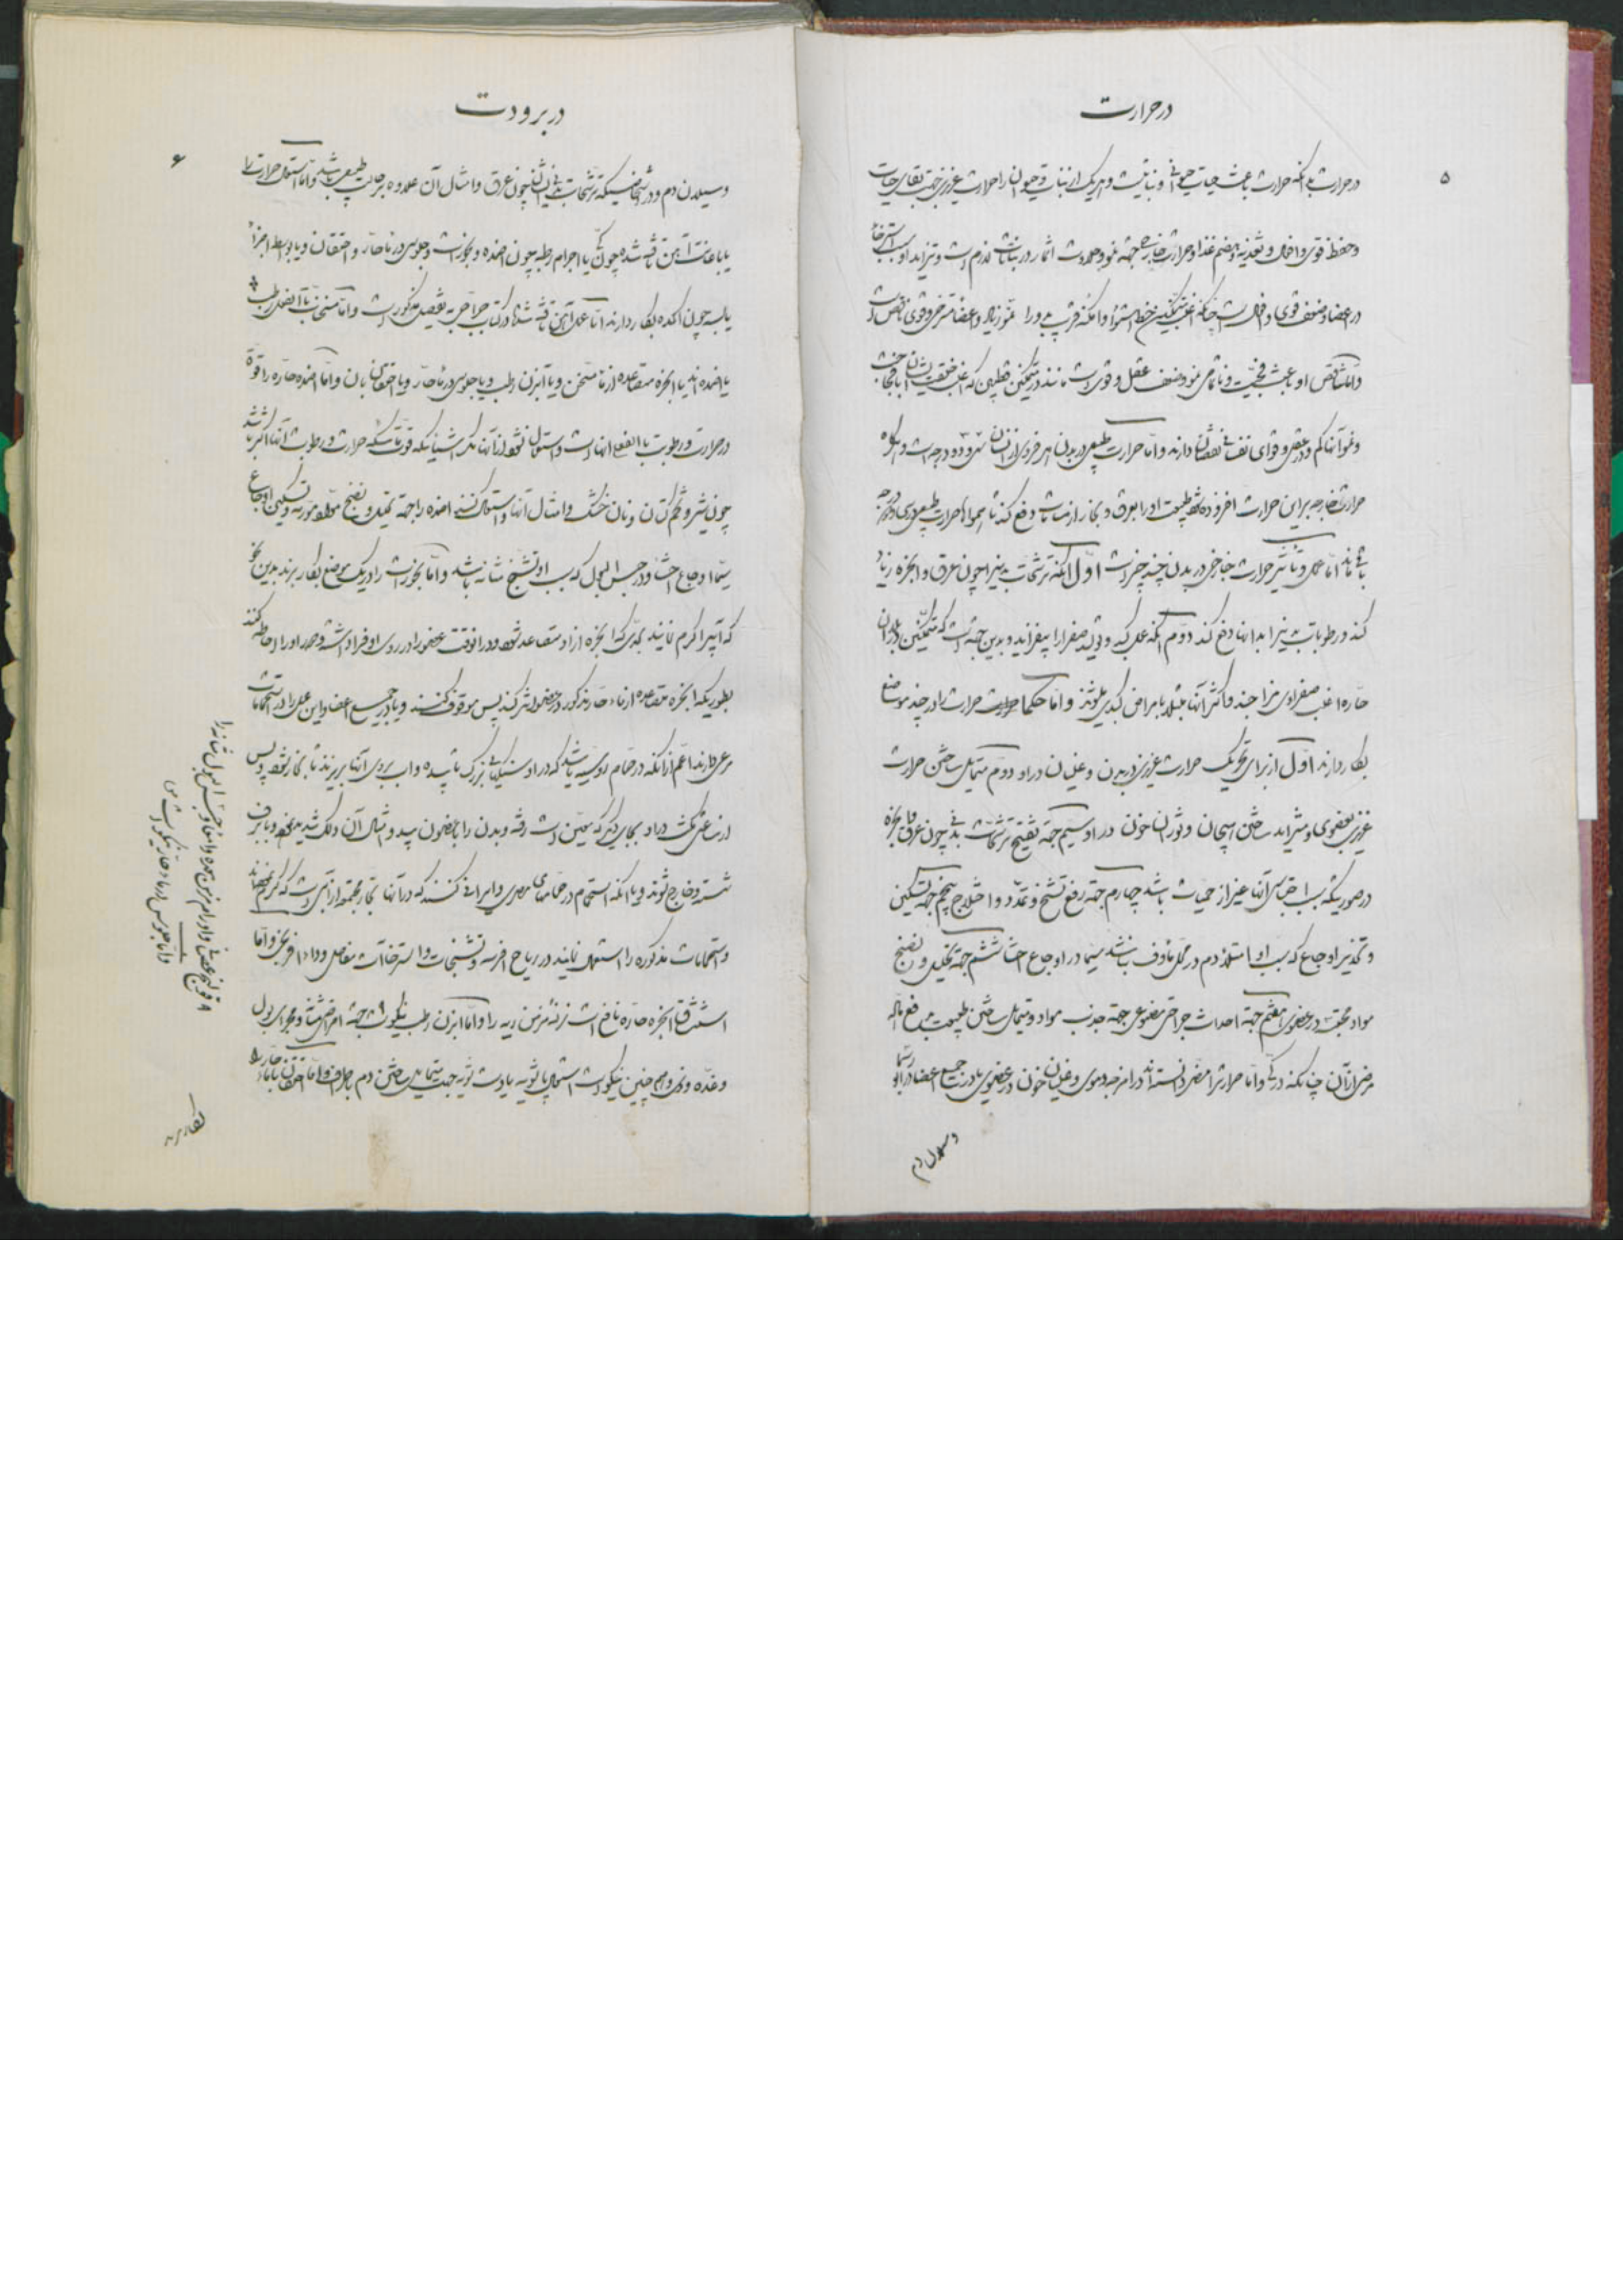 در حرارت
۵
در حرارت بدانکه حرارت باعث حیات حیوانی و نباتیست و هر یک از نبات و حیوان را حرارت غریزی جهة بقای حیات
و حفظ قوی و افعال و تغذیه و هضم غذا و حرارت خارجه جهة نمو و اثمار در نباتات لازم است و تزاید او سبب استرخاء
در اعضا و ضعف قوی و افعال است چنانکه اغلب متمکنین خط استوا و امکنه قریب بدو را نمو زیاد و اعضا مسترخی و قوی ناقص است
و اما تناقص او باعث فجیت و ناتمامی نمو و ضعف عقل و قوی است مانند متمکنین قطبین که اغلب خلقت ایشان با فجاجت
و نمو آنها کم و در عقل و قوای نفسانی نقصان دارند و اما حرارت طبیعی در بدن هر فردی از انسان سی و ده درجه است و هرگاه
حرارت خارجه بر این حرارت افزوده شود طبیعت او را بعرق و بخار از مسامات دفع کند تا همواره حرارت طبیعی در سی و درجه
باقی ماند اما عمل و تاثیر حرارت خارجی در بدن چند چیز است اول آنکه ترشحات بدنیرا چون عرق و ابخره زیاد
کند و رطوبات بدنیرا بدانها دفع کند دوم آنکه عمل کبد و تولید صفرا را بیفزاید و بدین جهة است که متمکنین در بلدان
حاره اغلب صفراوی مزاجند و اکثر آنها مبتلا بامراض کبدی میشوند و اما حکما حرارت را در چند موضع
بکار دارند اول از برای تحریک حرارت غریزی در بدن و غلیان در او دوم متمایل ساختن حرارت
غریزی بعضوی و متزاید ساختن هیجان و ثوران خون در او سیم جهة تفتیح ترشحات بدنی چون عرق و ابخره
در صورتیکه سبب احتباس آنها غیر از حمیات باشد چهارم جهة رفع تشنج و تمدد و اختلاج پنجم جهة تسکین
و تخدیر اوجاع که سبب او امتلاء دم در محل ماوف نباشد سیما در اوجاع احشا ششم جهة تحلیل و نضج
مواد محتبسه در عضوی هفتم جهة احداث جراحتی مصنوعی جهة جذب مواد و متمایل ساختن طبیعت بدفع ماده
مرض از آن چنانکه در کی و اما حرارت را مضر دانسته‌اند در امزجه دموی و غلیان خون در عضوی یا در جمیع اعضا و در ابو رسما
و سیلان دم
در برودت
۶
و سیلان دم و در اشخاصیکه ترشحات بدنی ایشان چون عرق و امثال آن علاوه بر حالت طبیعی باشد و اما استعمال حرارت را
یا باعانت آهن تافته شده چون کی یا اجرام رطبه چون اضمده و بخورات و جلوس در ماء حار و احتقان و یا بواسطه اجزاء
یابسه چون اکمده بکار دارند اما عمل آهن تافته شده در کتاب جراحی به تفصیل مذکور است و اما مسخنات بالفعل رطب
یا اضمده‌اند یا ابخره متصاعده از ماء مسخن و یا آبزن رطب و یا جلوس در ماء حار و یا احتقان بان و اما اضمده حاره را قوة
در حرارت و رطوبت بالفعل انها است و استعمال شود از آنها مگر اشیائیکه قوت تاسکه حرارت و رطوبت آنها اکثر باشد
چون شیر و تخم کتان و نان خشک و امثال آنها و استعمال کنند اضمده را جهة تحلیل و نضج مواد متورمه و تسکین اوجاع
سیما اوجاع احشا و در حبس البول که سبب او تشنج مثانه باشد و اما بخورات را در یک موضع بکار برند بدین نحو
که آبیرا گرم نمایند بحدی که ابخره از او متصاعد شود و در آنوقت عضو را در روی او فرا داشته و بخار او را احاطه کنند
بطوریکه ابخره متصاعده از ماء حار مذکور در عضو اثر کند پس موقوف کنند و یا در جمیع اعضا و این عمل را در استحمامات
مرعی دارند اعم از آنکه در حمام روسیه باشد که در او سنگهای بزرگ تابیده و اب بروی آنها بریزند تا بخار شود و پس
از ساعتی مکث در او بجای دیگر که معین است رفته و بدن را با صابون بید و شال آن دلک شدید نموده و با برف
شسته و خارج شوند و یا آنکه استحمام در حمامهای مصری و ایرانی کنند که در آنها بخار مجتمع از آبی است که گرم نموده‌اند
و استحمامات مذکوره را استعمال نمایند در ریاح افرسه و تشنجات و استرخاآت مفاصل و داء افرنجی و اما
استنشاق ابخره حاره نافع است نزله مزمن ریه را و اما آبزن رطب نیکو است جهة امراض مثانه و مجرای بول
و غده وذی و همچنین نیکو است استعمال پاشویه یا دستشویه جهت متمایل ساختن دم باطراف و اما احتقان بماء حار را
۹ قولنج عصبی و اورام مزمن معده و امعا و حبس البول مثانه را
و اما جلوس در ماء حار نیکو است من
بکار برند